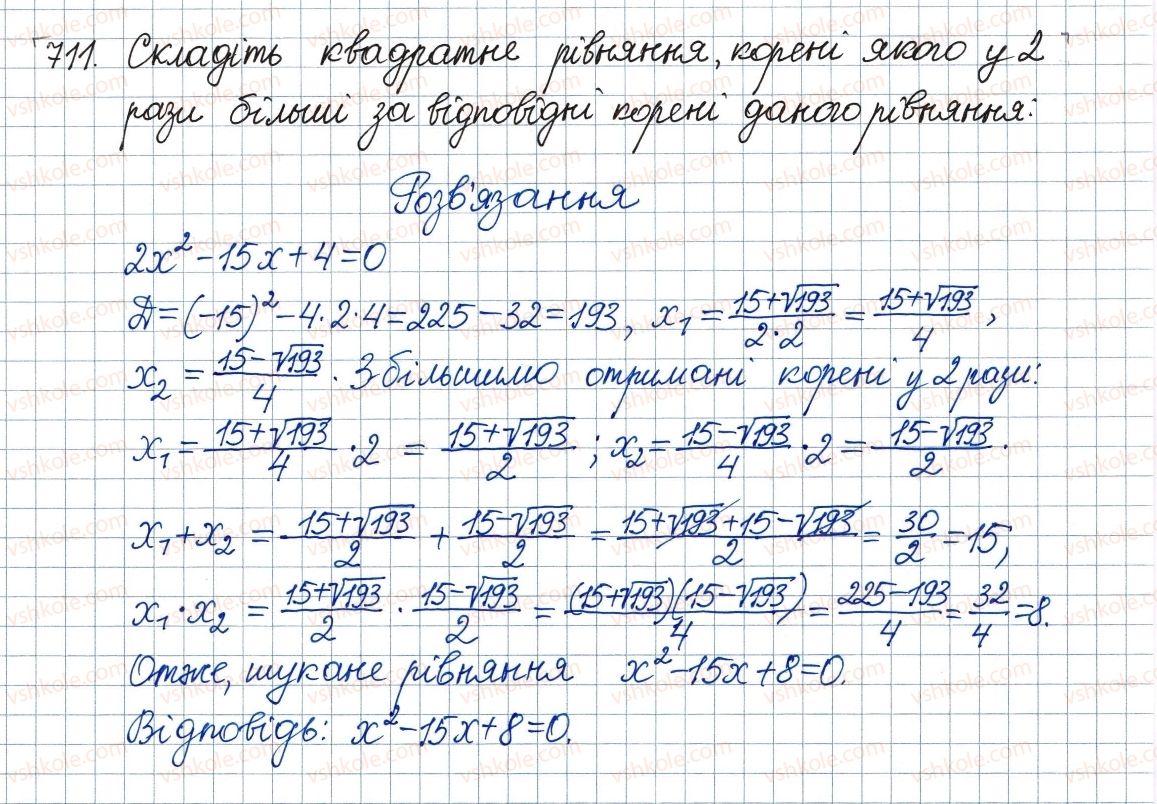 711. Складіть квадратне рівняння, корені якого у 2
рази більші за відповідні корені даного рівняння:
Розв'язання
2x² - 15x + 4 = 0
Д = (-15)² - 4·2·4 = 225 - 32 = 193, x₁ = (15+√193)/(2·2) = (15+√193)/4,
x₂ = (15-√193)/4. Збільшимо отримані корені у 2 рази:
x₁ = (15+√193)/4 · 2 = (15+√193)/2; x₂ = (15-√193)/4 · 2 = (15-√193)/2.
x₁ + x₂ = (15+√193)/2 + (15-√193)/2 = (15+√193+15-√193)/2 = 30/2 = 15;
x₁ · x₂ = (15+√193)/2 · (15-√193)/2 = ((15+√193)(15-√193))/4 = (225-193)/4 = 32/4 = 8.
Отже, шукане рівняння x² - 15x + 8 = 0.
Відповідь: x² - 15x + 8 = 0.
vshkole.com